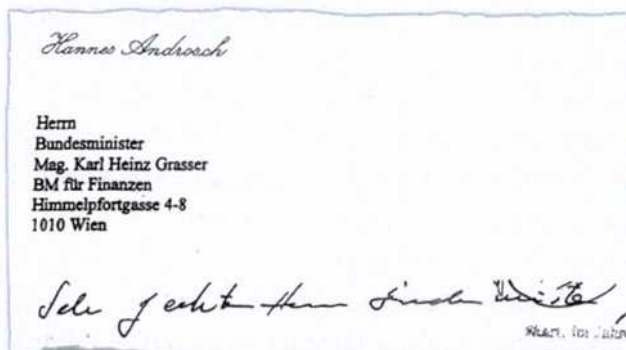 Hannes Androsch
Herrn
Bundesminister
Mag. Karl Heinz Grasser
BM für Finanzen
Himmelpfortgasse 4-8
1010 Wien
Sehr geehrter Herr